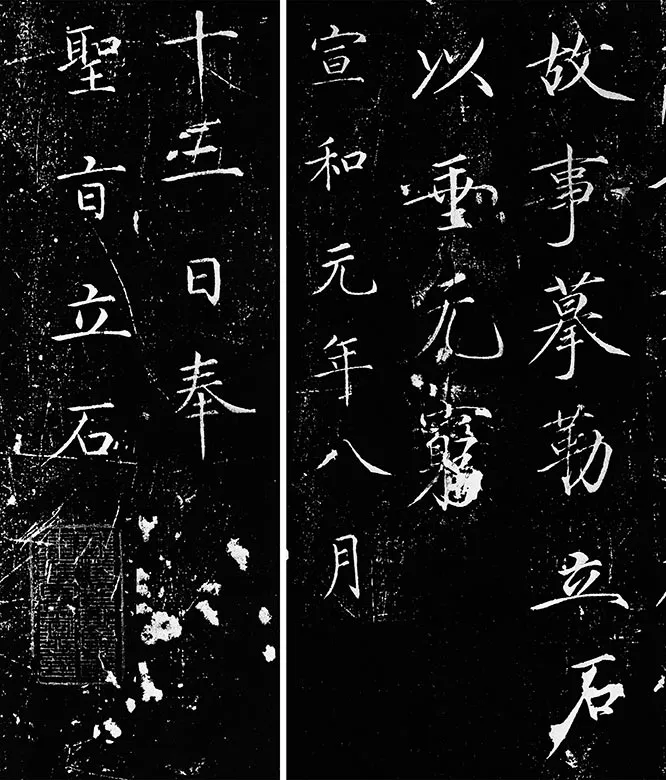 故事摹勒立石
以垂无窮
宣和元年八月
十五日奉
聖旨立石